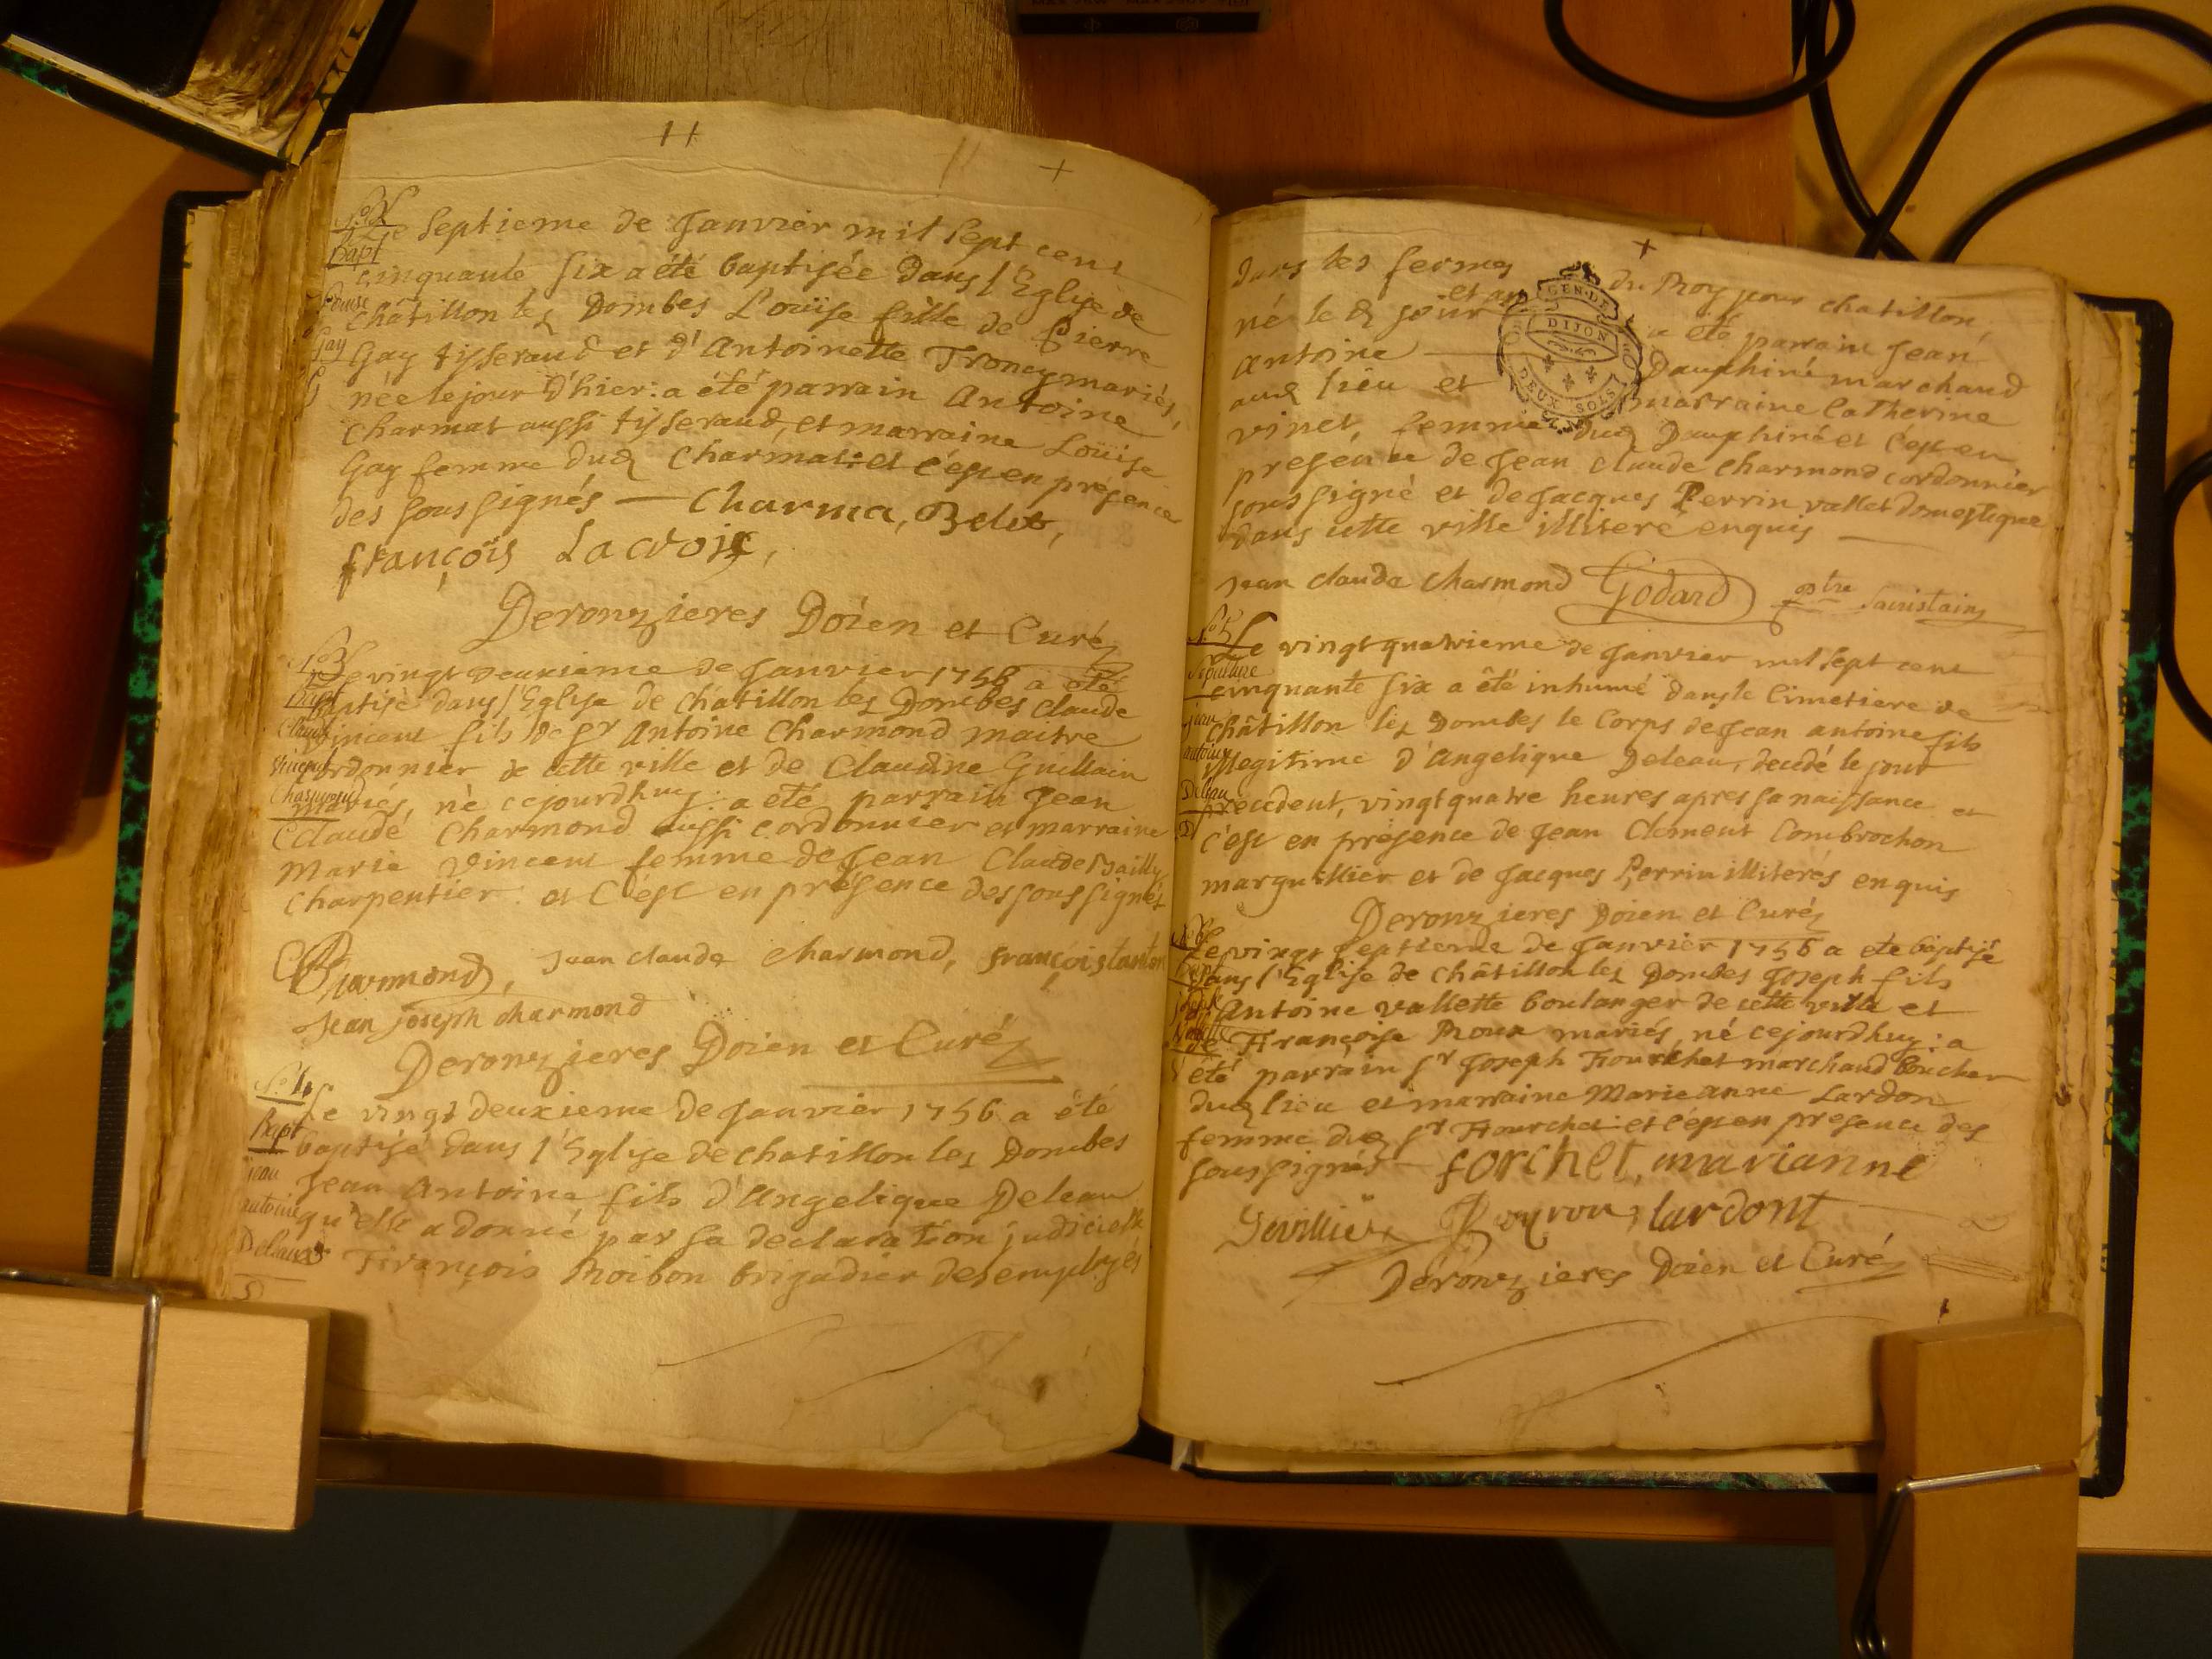 N.o 2
Bapt
Louise
Gay
G
Le Septieme de Janvier mil Sept cent
cinquante six a été baptisée dans l'Eglise de
Châtillon les Dombes Loüise fille de Pierre
Gay tisserand et d'Antoinette Troncy mariés,
née le jour d'hier: a été parrain Antoine
Charmat aussi tisserand, et marraine Loüise
Gay femme dud Charmat: et c'est en présence
des soussignés — Charma, Belet,
françois Lacroix,
Deronzieres Doïen et Curé
N.o 3
Bapt
Claude
Vincent
Charmond
Le vingt deuxieme de Janvier 1756 a été
baptisé dans l'Eglise de Chatillon les Dombes Claude
Vincent fils de Sr Antoine Charmond maitre
Cordonnier de cette ville et de Claudine Guillain
mariés, né cejourdhuy: a été parrain Jean
Claude Charmond aussi cordonnier et marraine
Marie Vincent femme de Jean Claude Bailly
Charpentier: et C'est en présence des soussignés
Charmond, Jean claude charmond, françois tanton
Jean joseph charmond
Deronzieres Doïen et Curé
N.o 4
Bapt
jean
antoine
Deleau
Le vingt deuxieme de Janvier 1756 a été
baptisé dans l'Eglise de chatillon les Dombes
Jean Antoine fils d'Angelique Deleau
qu'elle a donné par sa declaration judicielle
a François Roibon brigadier des employés
+
dans les fermes du Roy pour chatillon
né le d jour et an a été parrain Jean
Antoine — Dauphiné marchand
aud lieu et marraine Catherine
vinet, femme dud Dauphiné et c'est en
presence de Jean claude Charmond cordonnier
soussigné et de Jacques Perrin vallet domestique
dans cette ville illiteré enquis —
GEN. DE
DIJON
DEUX SOLS
Jean claude charmond Godard ptre Sacristain
N.o 5
Sepulture
jean
antoine
Deleau
D
Le vingt quatrieme de Janvier mil sept cent
cinquante six a été inhumé dans le Cimetiere de
Châtillon les Dombes le Corps de Jean antoine fils
illegitime d'Angelique Deleau, decedé le jour
précédent, vingt quatre heures apres sa naissance et
c'est en présence de Jean Clement Combrochon
marguillier et de Jacques Perrin illiterés enquis
Deronzieres Doïen et Curé
N.o 6
Bapt
Joseph
Vallette
Le vingt septieme de Janvier 1756 a été baptisé
dans l'Eglise de Châtillon les Dombes Joseph fils
d'Antoine vallette boulanger de cette ville et
de Françoise Roux mariés, né cejourdhuy: a
été parrain Sr Joseph Fourchet marchand boucher
dud lieu et marraine Marie anne Lardon
femme dud Sr Fourchet: et c'est en presence des
soussignés — forchet, marianne
Devilliers Peyron, lardont
Deronzieres Doïen et Curé